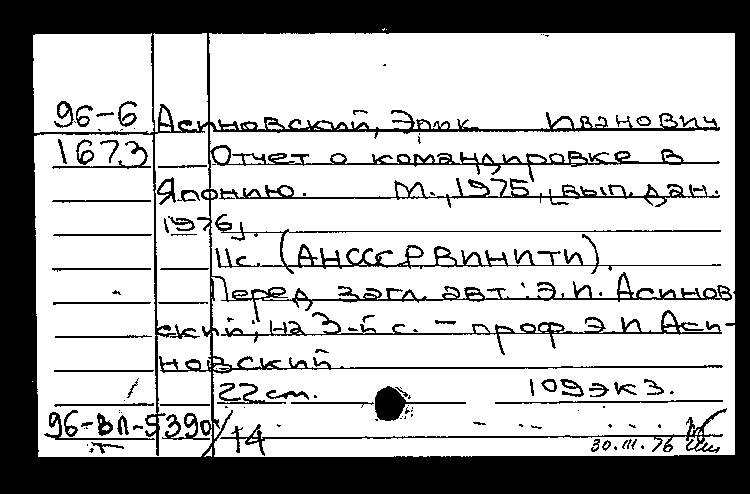 96-6 Асиновский, Эрик Иванович
1673 Отчет о командировке в
Японию. М., 1975, [вып. дан.
1976].
11с. (АН СССР ВИНИТИ).
Перед загл. авт.: Э.И. Асинов-
ский; на 3-й с. - проф. Э.И. Аси-
новский.
22 см. 109 экз.
96-ВП-5390/14
30.III.76